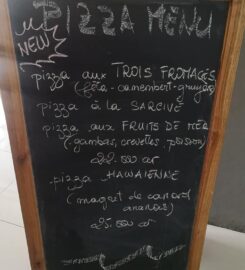 PIZZA MENU
NEW
pizza aux TROIS FROMAGES
(féta - camembert - gruyère)
pizza à la SARCIVE
pizza aux FRUITS DE MER
(gambas, crevettes, poisson)
28.000 ar
pizza HAWAIENNE
(magret de canard
ananas)
25.000 ar